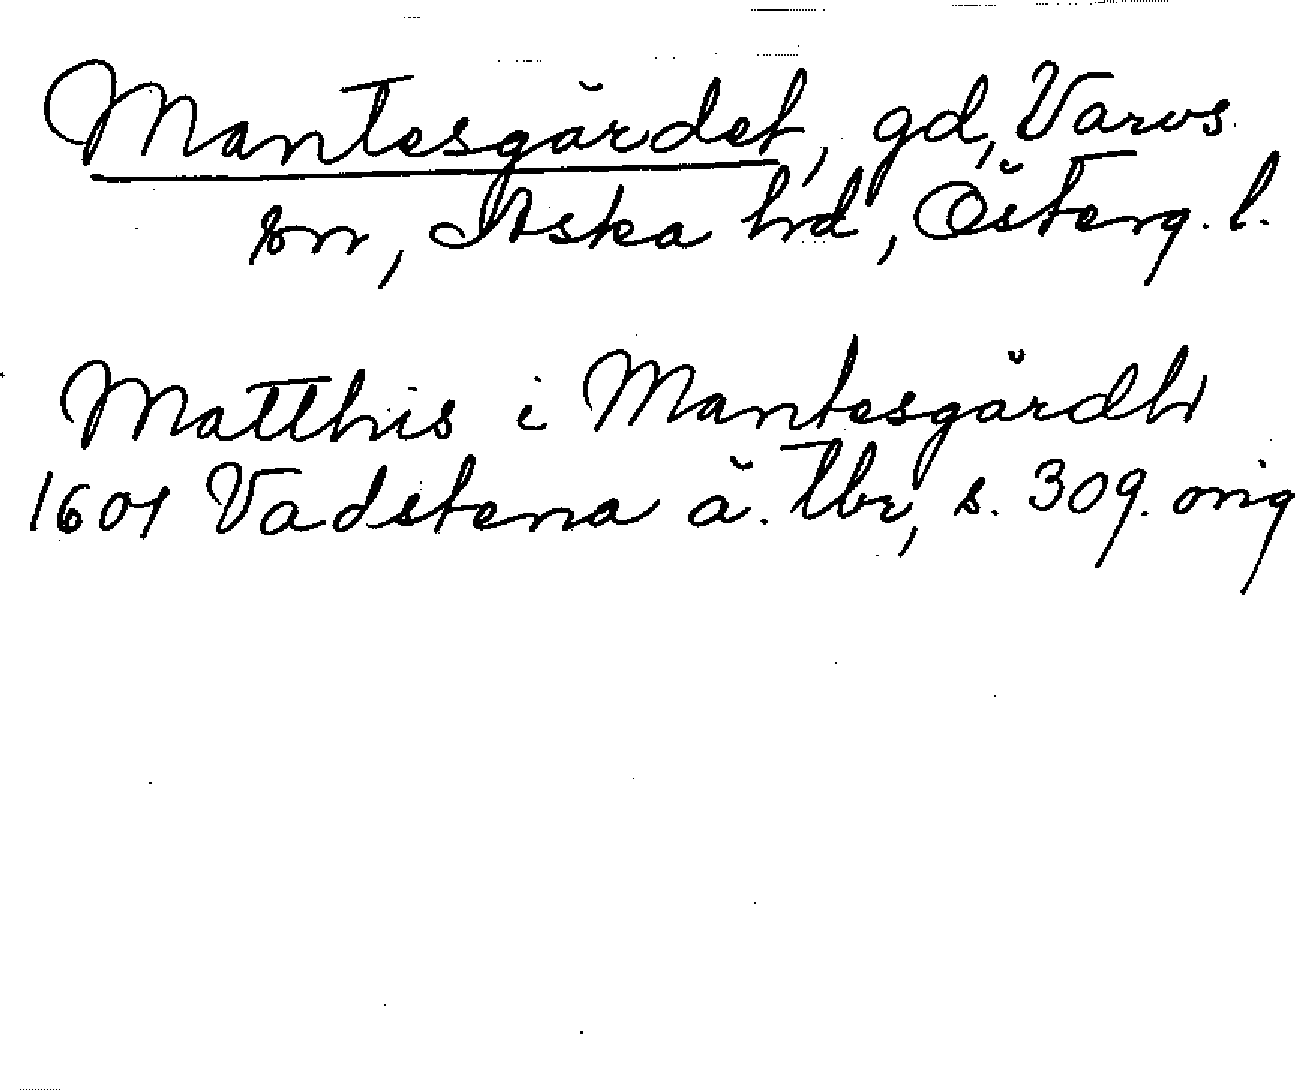 Mantesgärdet, gd, Varvs
sn, Aska hd, Österg. l.
Matthis i Mantesgärdh
1601 Vadstena ä. tbr, s. 309. orig